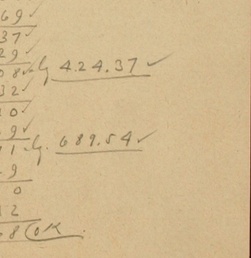 69 ✓
37 ✓
29 ✓
08 ✓ lg. 424.37 ✓
32 ✓
20 ✓
9 ✓
91 ✓ lg. 689.54 ✓
9
0
12
68 OK